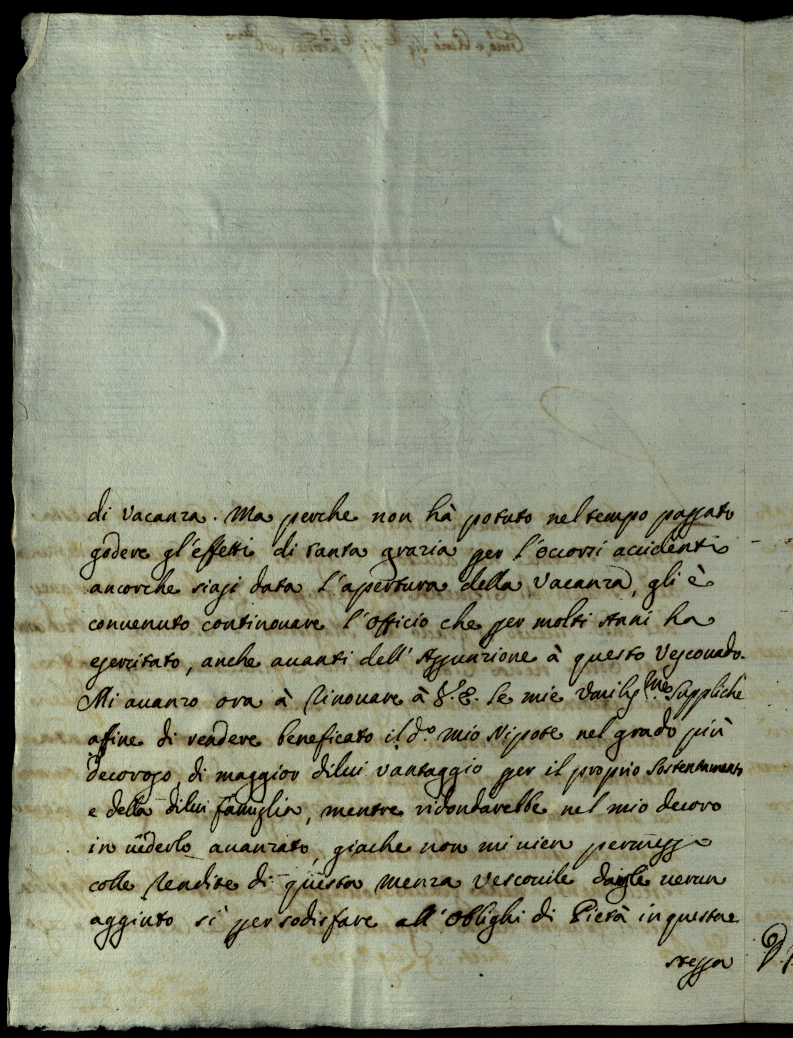 di vacanza. Ma perche non hà potuto nel tempo passato
godere gl'effetti di tanta grazia per l'occorsi accidenti
ancorche siasi data l'apertura della Vacanza, gli è
convenuto continovare l'officio che per molti Anni ha
esercitato, anche avanti dell'Assunzione à questo Vescovado.
Mi avanzo ora à rinovare à V.E. le mie Vmilis.me Suppliche
affine di rendere beneficato il d.o mio Nipote nel grado più
decoroso, di maggior dilui vantaggio per il proprio Sostentamento
e della dilui famiglia, mentre ridondarebbe nel mio decoro
in uederlo avanzato, giache non mi vien permesso
colle Rendite di questa menza Vescovile dargle verun
aggiuto sì per sodisfare all'Oblighi di Pietà in questa
stessa